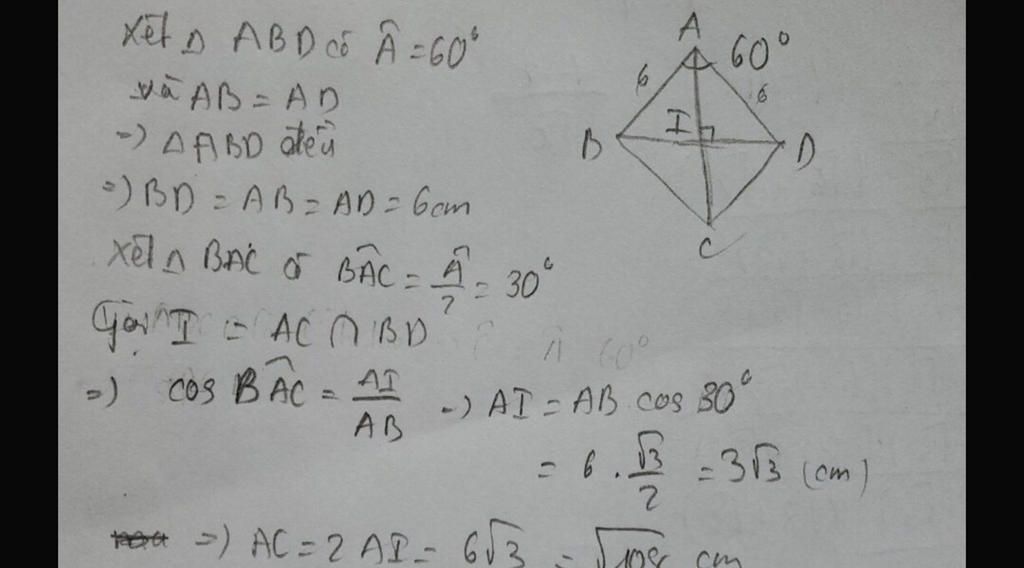 Xét Δ ABD có Â = 60°
và AB = AD
=) Δ ABD đều
=) BD = AB = AD = 6cm
Xét Δ BAC có BAC^ = Â/2 = 30°
Gọi I = AC ∩ BD
=) cos BAC^ = AI/AB =) AI = AB cos 30°
= 6 . √3/2 = 3√3 (cm)
=) AC = 2 AI = 6√3 = √108 cm
A 60°
6 6
B I D
C